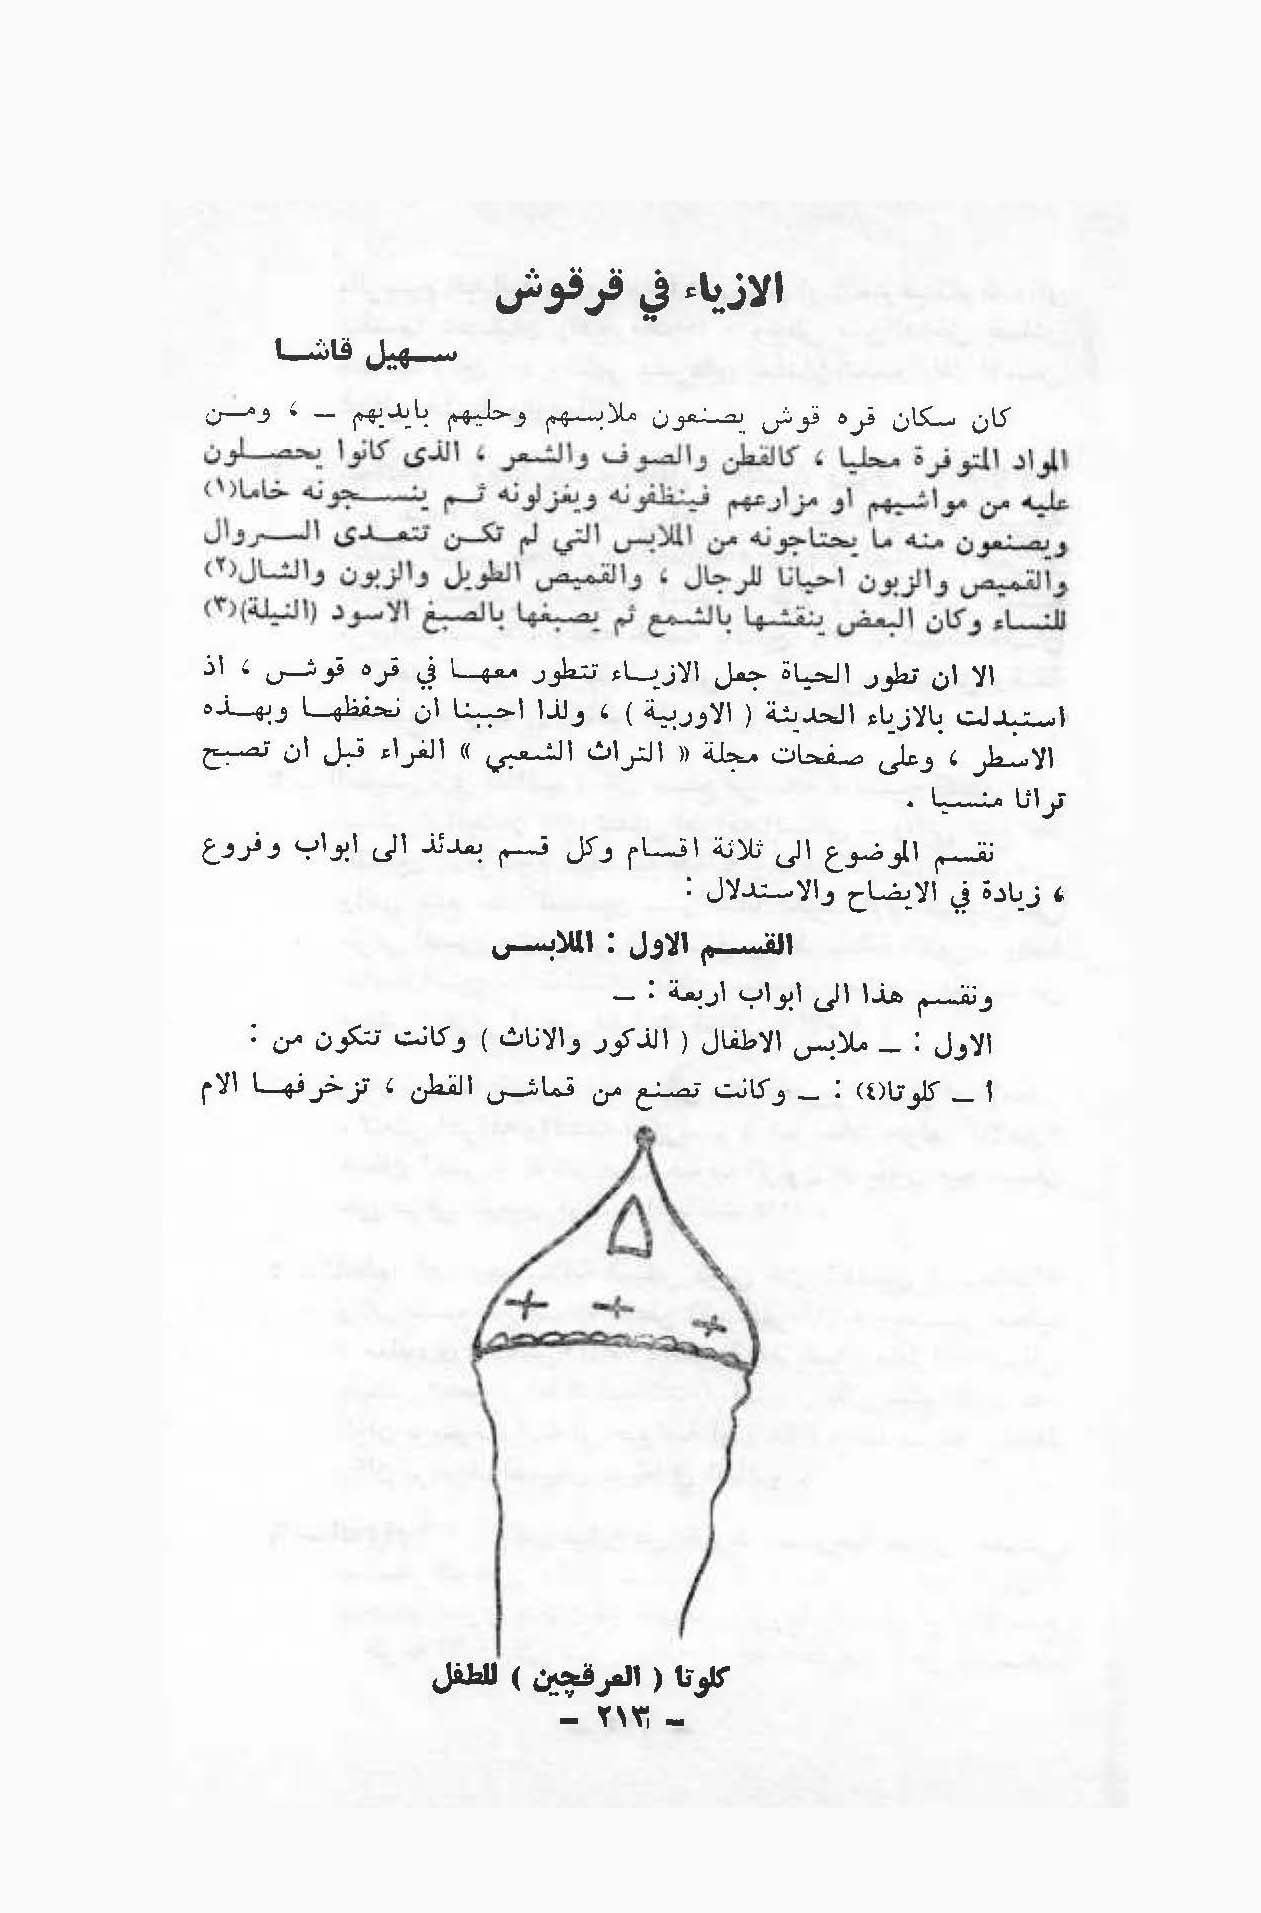 الازياء في قرقوش
سهيل قاشا
كان سكان قره قوش يصنعون ملابسهم وحليهم بايديهم ــ ، ومن
المواد المتوفرة محليا ، كالقطن والصوف والشعر ، الذى كانوا يحصلون
عليه من مواشيهم او مزارعهم فينظفونه ويغزلونه ثم ينسجونه خاما(١)
ويصنعون منه ما يحتاجونه من الملابس التي لم تكن تتعدى السروال
والقميص والزبون احيانا للرجال ، والقميص الطويل والزبون والشال(٢)
للنساء وكان البعض ينقشها بالشمع ثم يصبغها بالصبغ الاسود (النيلة)(٣)
الا ان تطور الحياة جعل الازياء تتطور معها في قره قوش ، اذ
استبدلت بالازياء الحديثة ( الاوربية ) ، ولذا احببنا ان نحفظها وبهذه
الاسطر ، وعلى صفحات مجلة « التراث الشعبي » الغراء قبل ان تصبح
تراثا منسيا .
نقسم الموضوع الى ثلاثة اقسام وكل قسم بعدئذ الى ابواب وفروع
، زيادة في الايضاح والاستدلال :
القسم الاول : الملابس
ونقسم هذا الى ابواب اربعة : ــ
الاول : ــ ملابس الاطفال ( الذكور والاناث ) وكانت تتكون من :
أ ــ كلوتا(٤) : ــ وكانت تصنع من قماش القطن ، تزخرفها الام
كلوتا ( العرقچين ) للطفل
– ٢١٣ –